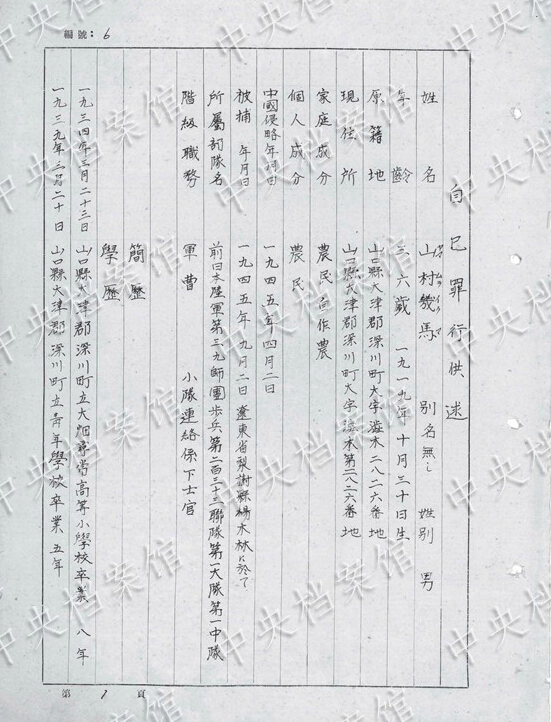 編號：6
自己罪行供述
姓名 山村幾馬 別名無し 姓別 男
年齡 三六歲 一九一九年十月三十日生
原籍地 山口縣大津郡深川町大字澁木二八二六番地
現住所 山口縣大津郡深川町大字澁木第二八二六番地
家庭成分 農民自作農
個人成分 農民
中國侵略年月日 一九四五年四月二日
被捕年月日 一九四五年九月二日遼東省梨樹縣楊木林に於て
所屬部隊名 前日本陸軍第三九師團步兵第二百三十三聯隊第一大隊第一中隊
階級職務 軍曹 小隊連絡係下士官
簡歷
學歷
一九三四年三月二十三日 山口縣大津郡深川町立大畑尋常高等小學校卒業 八年
一九三九年三月二十日 山口縣大津郡深川町立青年學校卒業 五年
第 1 頁
中央档案馆